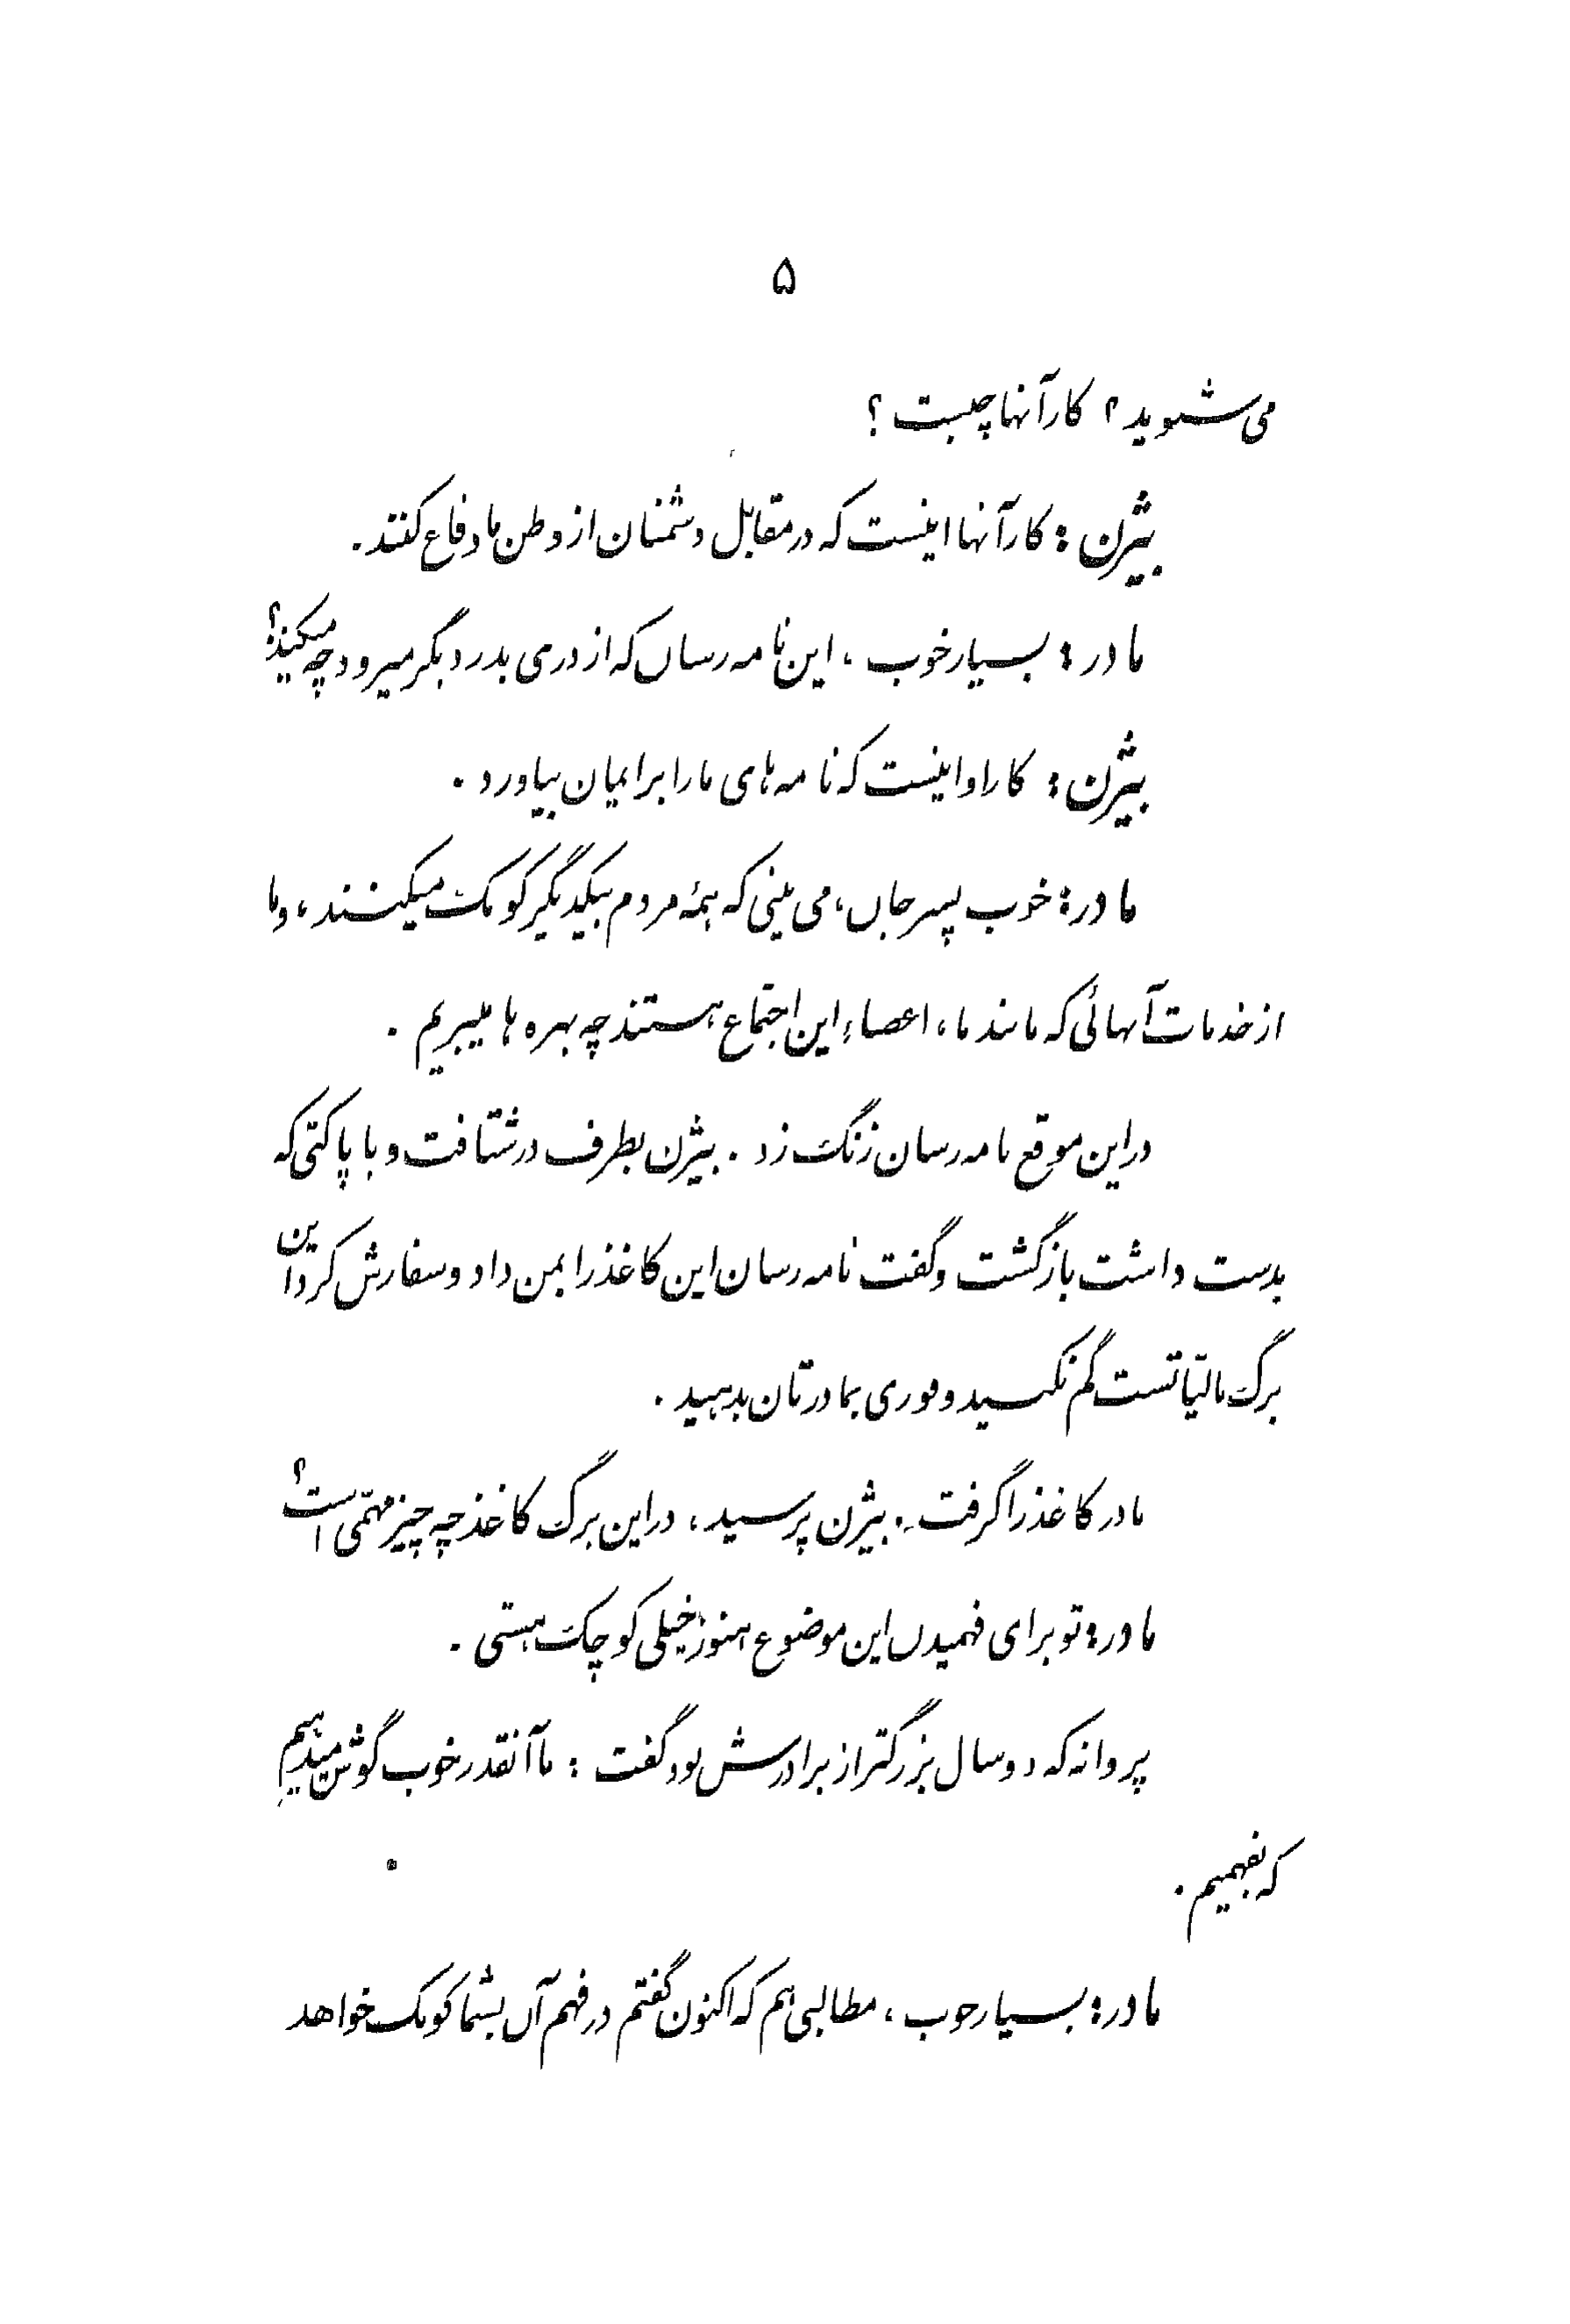 ۵
می‌شنوید؟ کار آنها چیست؟
بیژن: کار آنها اینست که در مقابل دشمنان از وطن ما دفاع کنند.
مادر: بسیار خوب، این نامه رسان که از دری بدر دیگر میرود چه میکند؟
بیژن: کار او اینست که نامه‌های ما را برایمان بیاورد.
مادر: خوب پسر جان، می بینی که همهٔ مردم بیکدیگر کومک میکنند، و ما
از خدمات آنهائی که مانند ما، اعضاء این اجتماع هستند چه بهره ها میبریم.
در این موقع نامه رسان زنگ زد. بیژن بطرف در شتافت و با پاکتی که
بدست داشت بازگشت و گفت نامه رسان این کاغذ را بمن داد و سفارش کرد این
برگ مالیاتست گم نکنید و فوری بمادرتان بدهید.
مادر کاغذ را گرفت. بیژن پرسید، در این برگ کاغذ چه چیز مهمّی است؟
مادر: تو برای فهمیدن این موضوع هنوز خیلی کوچک هستی.
پروانه که دو سال بزرگتر از برادرش بود گفت: ما آنقدر خوب گوش میدهیم
که بفهمیم.
مادر: بسیار خوب، مطالبی هم که اکنون گفتم در فهم آن بشما کومک خواهد